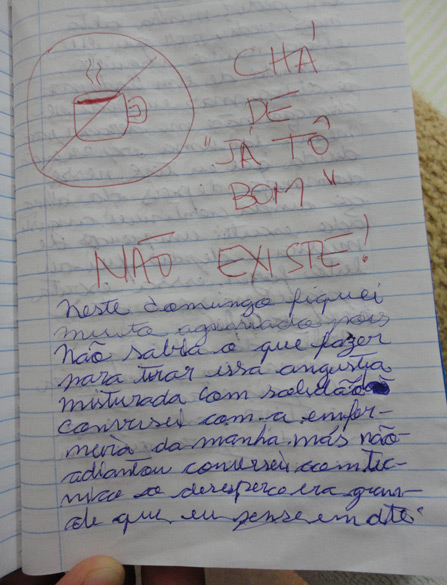 CHÁ
DE
"JÁ TÔ
BOM"
NÃO EXISTE!
Neste domingo fiquei
muito agoniado pois
não sabia o que fazer
para tirar essa angustia
misturada com solidão
conversei com a enfer-
meira da manha mas não
adiantou conversei com tec-
nico o desespero era gran-
de que eu pense em ate